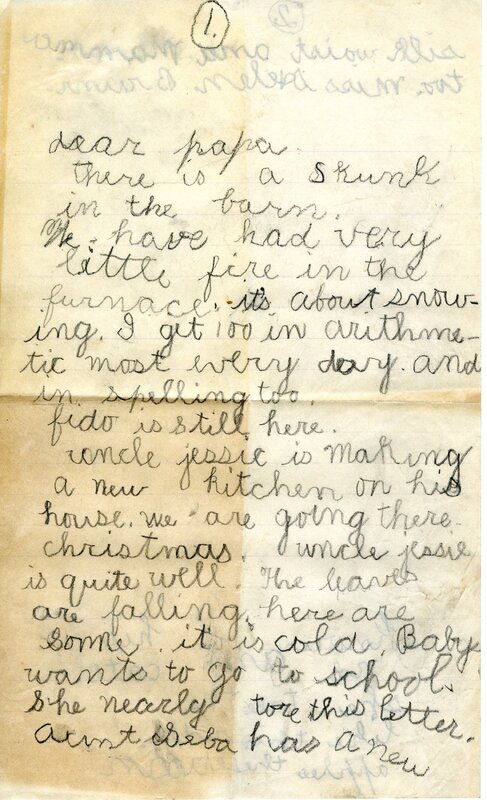 1.
dear papa.
there is a skunk
in the barn.
We have had very
little fire in the
furnace. it's about snow-
ing. I get 100 in arithme-
tic most every day. and
in spelling too.
fido is still here.
uncle jessie is making
a new kitchen on his
house. we are going there
christmas. uncle jessie
is quite well. The leaves
are falling. here are
some. it is cold. Baby
wants to go to school.
She nearly tore this letter.
Aunt Seba has a new